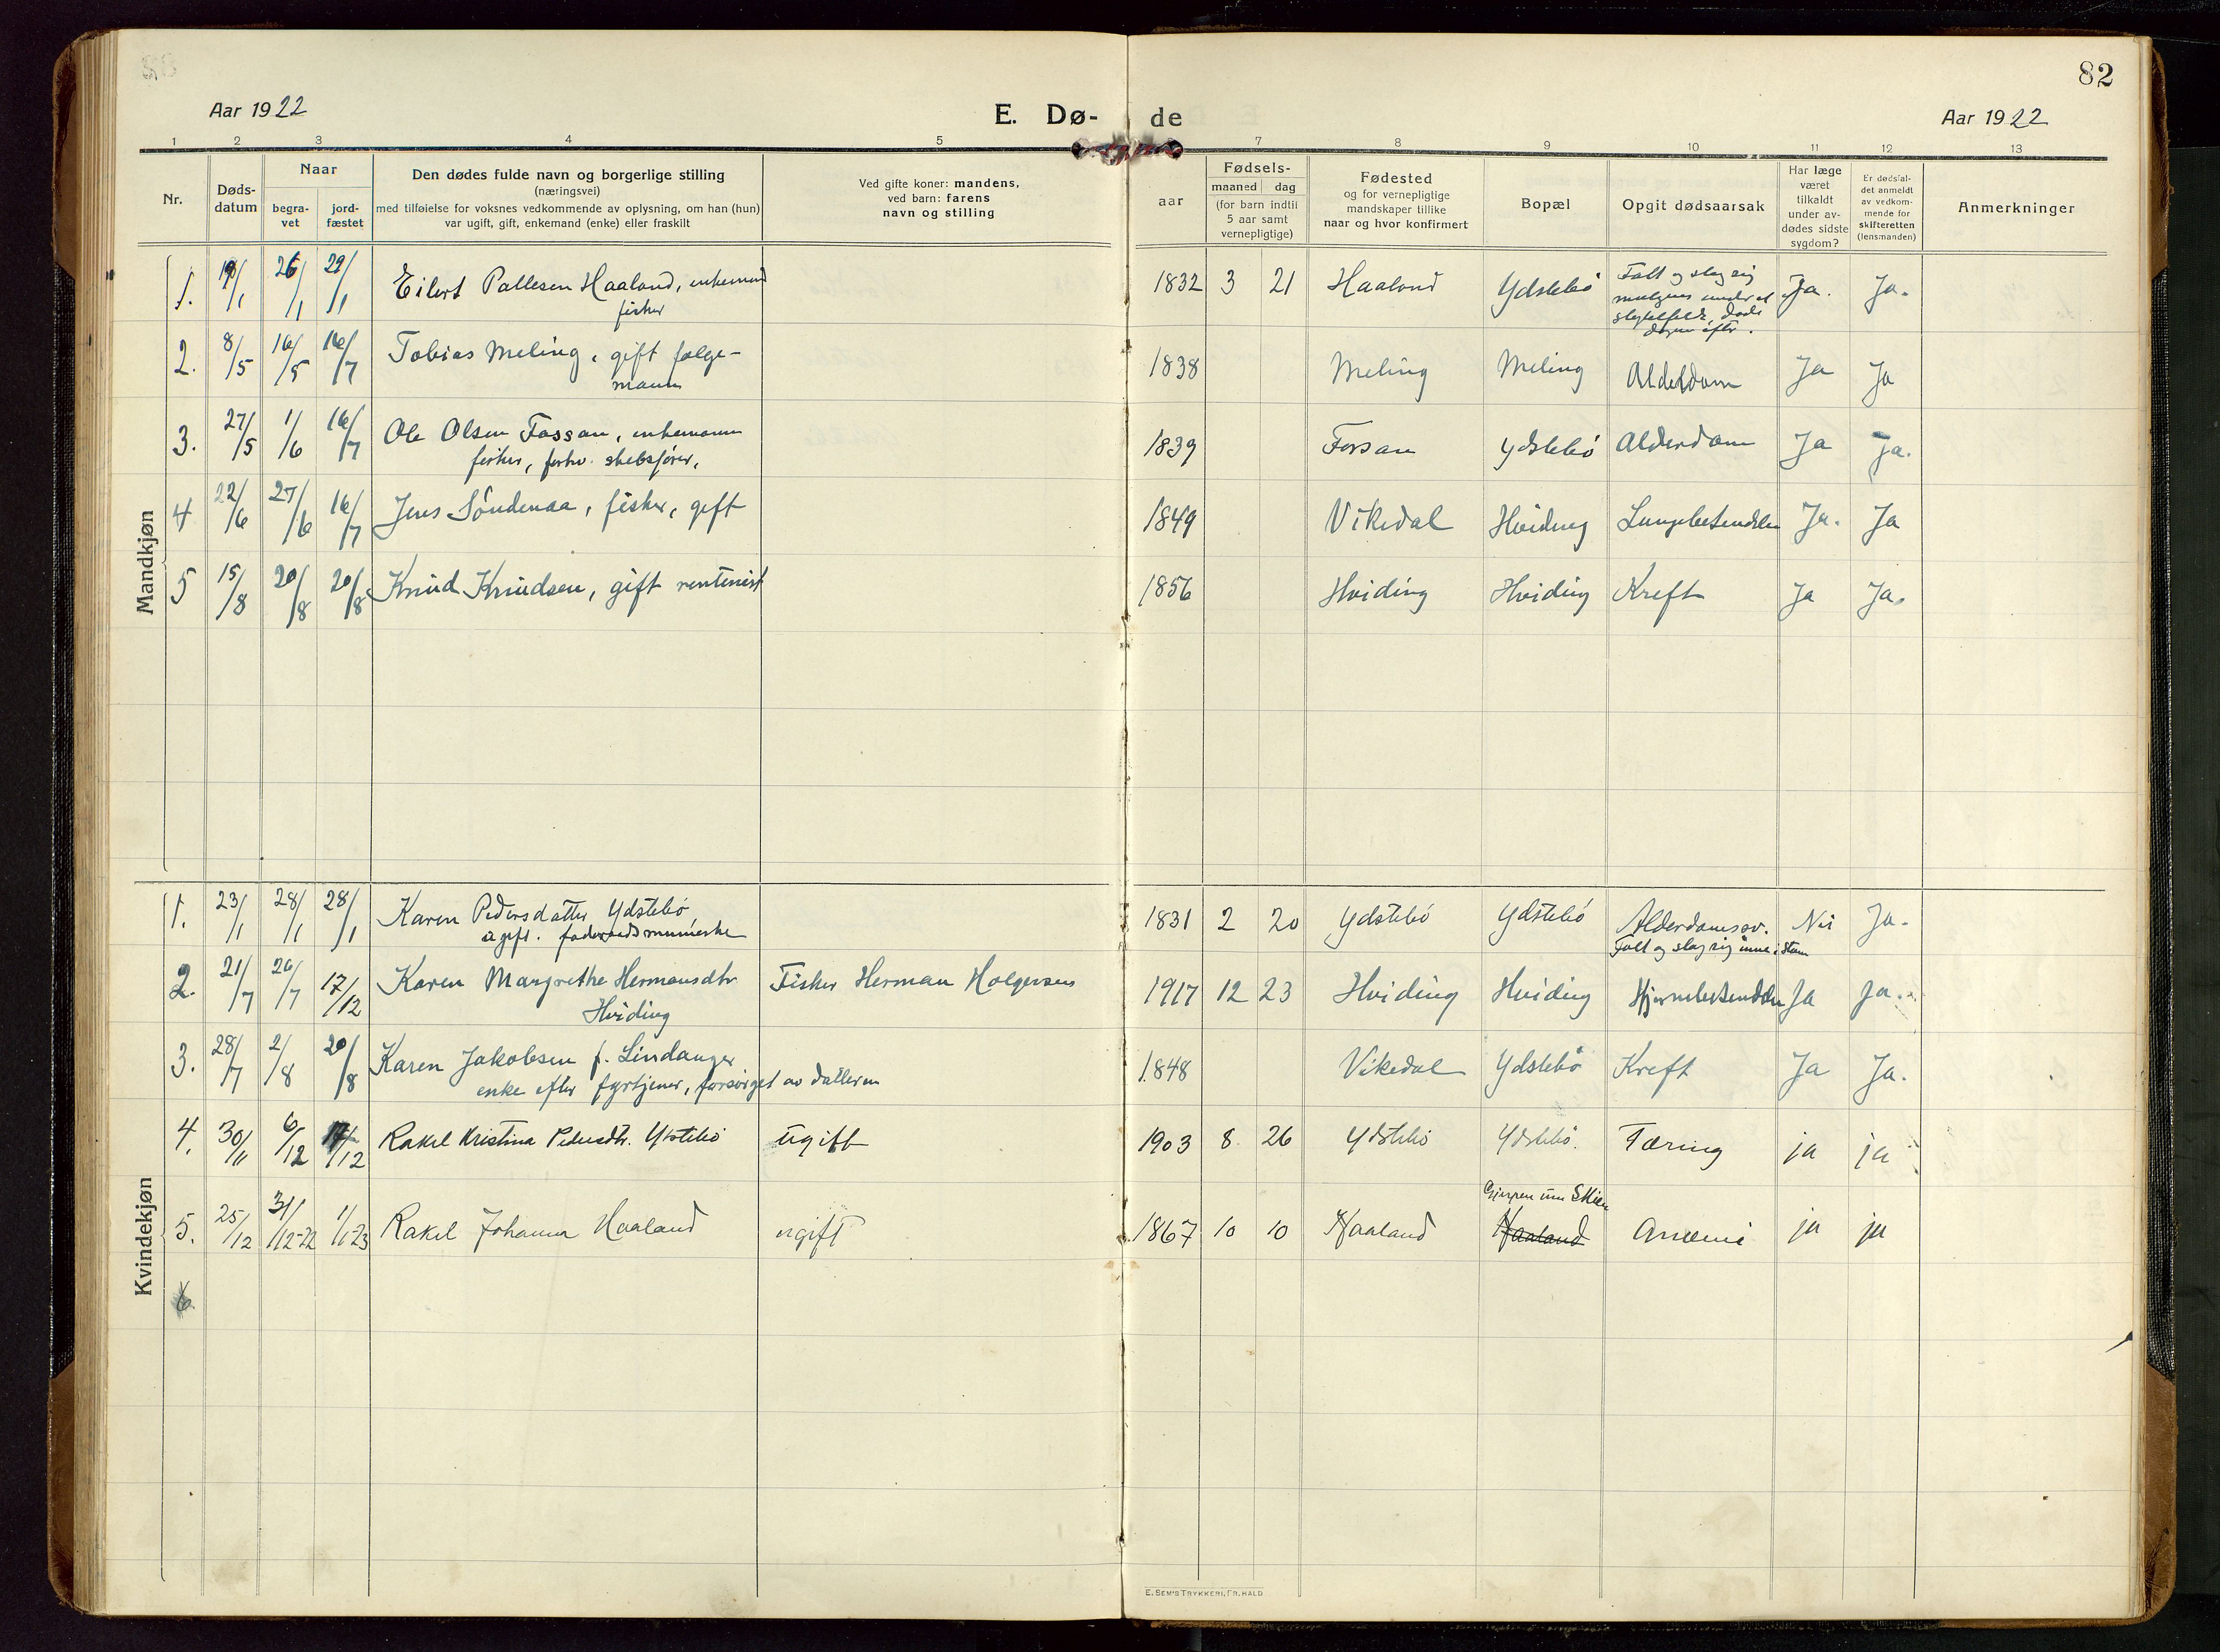 82
Aar 1922
E. Dø-
de
Aar 1922
1 2 3 4 5 7 8 9 10 11 12 13
Nr.
Døds-
datum
Naar
begra-
vet
jord-
fæstet
Den dødes fulde navn og borgerlige stilling
(næringsvei)
med tilføielse for voksnes vedkommende av oplysning, om han (hun)
var ugift, gift, enkemand (enke) eller fraskilt
Ved gifte koner: mandens,
ved barn: farens
navn og stilling
Fødsels-
aar
maaned dag
(for barn indtil
5 aar samt
vernepligtige)
Fødested
og for vernepligtige
mandskaper tillike
naar og hvor konfirmert
Bopæl
Opgit dødsaarsak
Har læge
været
tilkaldt
under av-
dødes sidste
sygdom?
Er dødsfal-
det anmeldt
av vedkom-
mende for
skifteretten
(lensmanden)
Anmerkninger
Mandkjøn
1. 26/1 29/1 Eilert Pallesen Haaland, enkemand
fisker
1832 3 21 Haaland Ydstebö Falt og slog sig
döde
dagen efter.
Ja. Ja.
2. 8/5 16/5 16/7 Tobias Meling, gift følge-
mann
1838 Meling Meling Alderdom Ja Ja
3. 27/5 1/6 16/7 Ole Olsen Fossan, enkemann
fisker, forhv. skibsfører,
1839 Fossan Ydstebö Alderdom Ja Ja.
4 22/6 27/6 16/7 Jens Söndenaa, fisker, gift
1849 Vikedal Hviding Lungebetendelse Ja. Ja
5 15/8 20/8 20/8 Knud Knudsen, gift rentenist
1856 Hviding Hviding Kreft Ja Ja.
Kvindekjøn
1. 23/1 28/1 28/1 Karen Pedersdatter Ydstebö,
ugift. föderaadsmenneske
1831 2 20 Ydstebö Ydstebö Alderdomssv.
Falt og slog sig inne i stuen
Nei Ja.
2. 21/7 26/7 17/12 Karen Margrethe Hermansdtr
Hviding
Fisker Herman Holgersens
1917 12 23 Hviding Hviding Hjernebetendelse Ja Ja.
3. 28/7 2/8 20/8 Karen Jakobsen f. Lindanger
enke efter fyrtjener, forsörget av datteren
1848 Vikedal Ydstebö Kreft Ja Ja.
4. 30/11 6/12 17/12 Rakel Kristina Pedersdtr. Ydstebö ugift
1903 8 26 Ydstebö Ydstebö. Tæring ja ja
5. 25/12 31/12-22 1/1-23 Rakel Johanna Haaland ugift
Gjerpen inn Skien
1867 10 10 Haaland Haaland Anæmi ja ja
6.
E. SEM'S TRYKKERI, FR.HALD